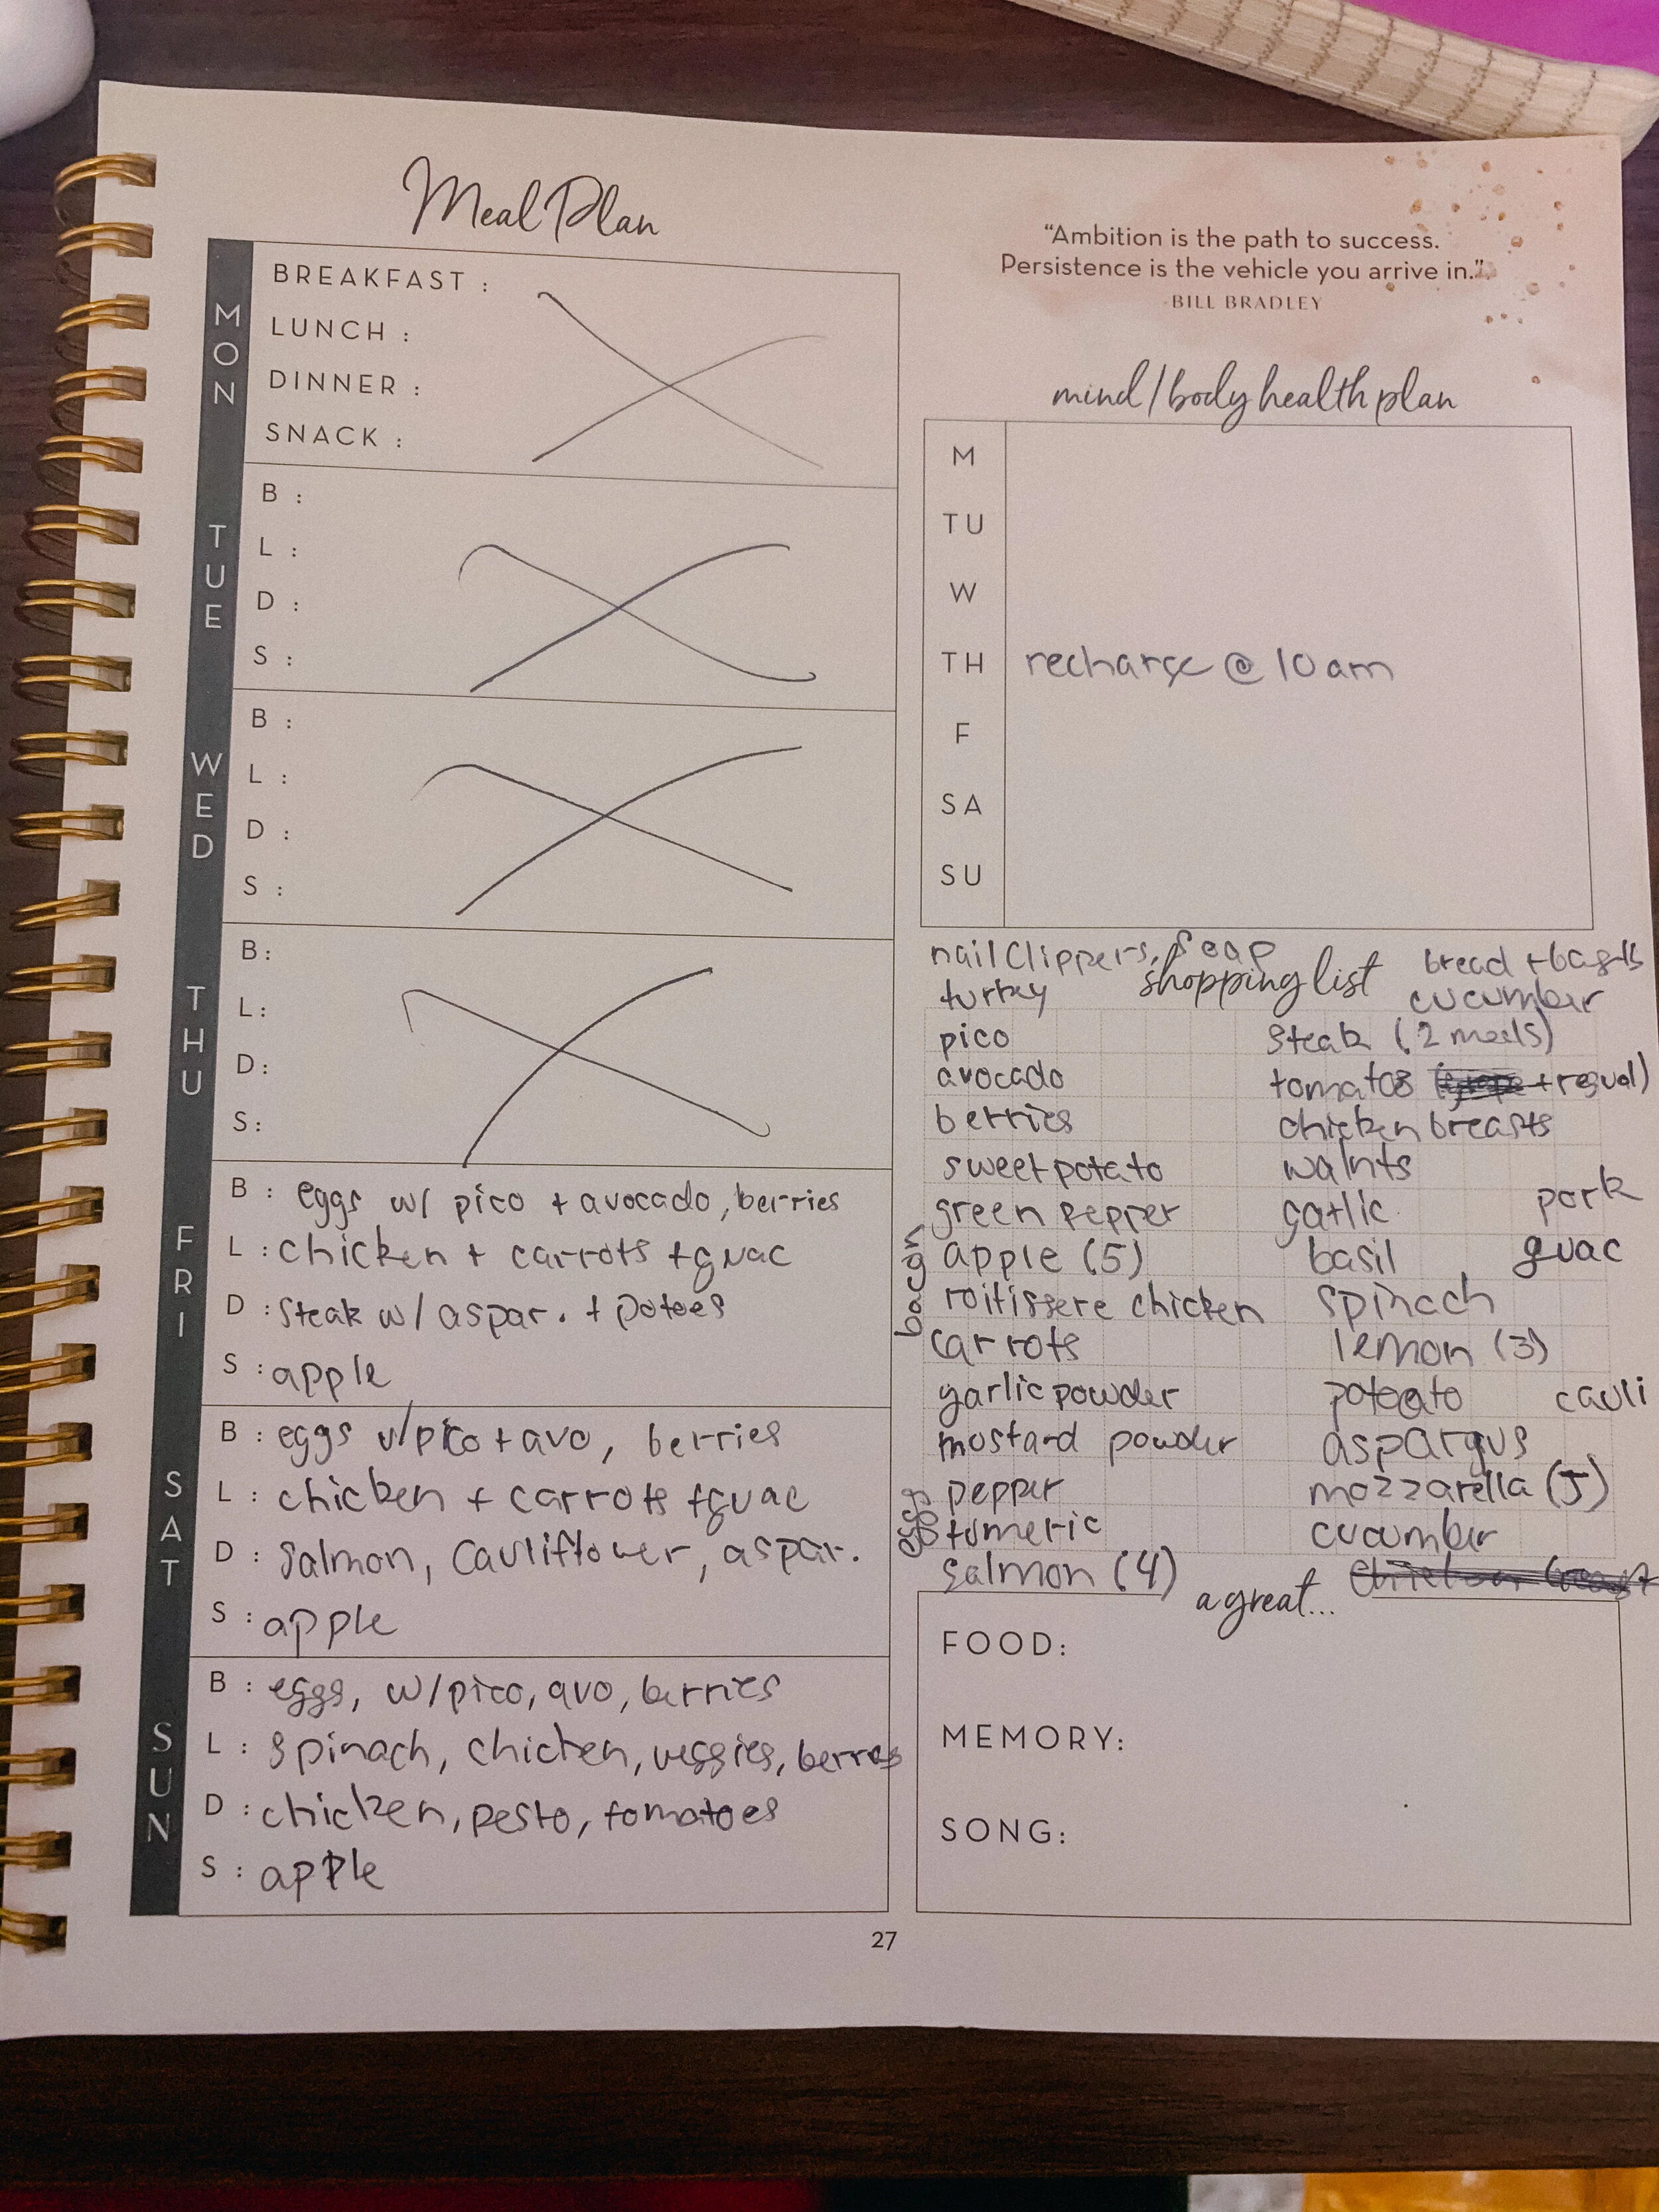 Meal Plan
MON
BREAKFAST :
LUNCH :
DINNER :
SNACK :
TUE
B :
L :
D :
S :
WED
B :
L :
D :
S :
THU
B:
L:
D:
S:
FRI
B : eggs w/ pico + avocado, berries
L : chicken + carrots + guac
D : steak w/ aspar. + potoes
S : apple
SAT
B : eggs w/pico + avo, berries
L : chicken + carrots + guac
D : salmon, cauliflower, aspar.
S : apple
SUN
B : eggs, w/pico, avo, berries
L : spinach, chicken, veggies, berres
D : chicken, pesto, tomatoes
S : apple
"Ambition is the path to success.
Persistence is the vehicle you arrive in."
-BILL BRADLEY
mind/body health plan
M
TU
W
TH recharge @ 10 am
F
SA
SU
nail clippers, soap
shopping list
turkey
pico
avocado
berries
sweet potato
green pepper
bacon
apple (5)
roitissere chicken
carrots
garlic powder
mustard powder
pepper
eggs
tumeric
salmon (4)
bread +
cucumber
steak (2 meals)
tomatos
chicken breasts
walnts
garlic
pork
basil
guac
spinach
lemon (3)
cauli
aspargus
mozzarella (5)
cucumber
a great...
FOOD:
MEMORY:
SONG:
27